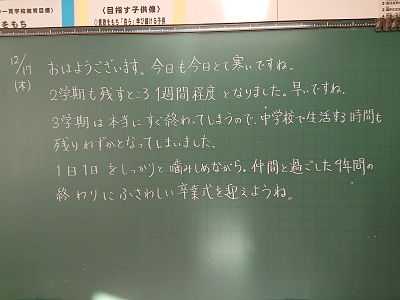 一貫学校教育目標〉
をもち
〈目指す子供像〉
12/17
(木)
おはようございます。今日も今日とて寒いですね。
2学期も残すところ1週間程度となりました。早いですね。
3学期は本当にすぐ終わってしまうので、中学校で生活する時間も
残りわずかとなってしまいました、
1日1日をしっかりと噛みしめながら、仲間と過ごした9年間の
終わりにふさわしい卒業式を迎えようね。